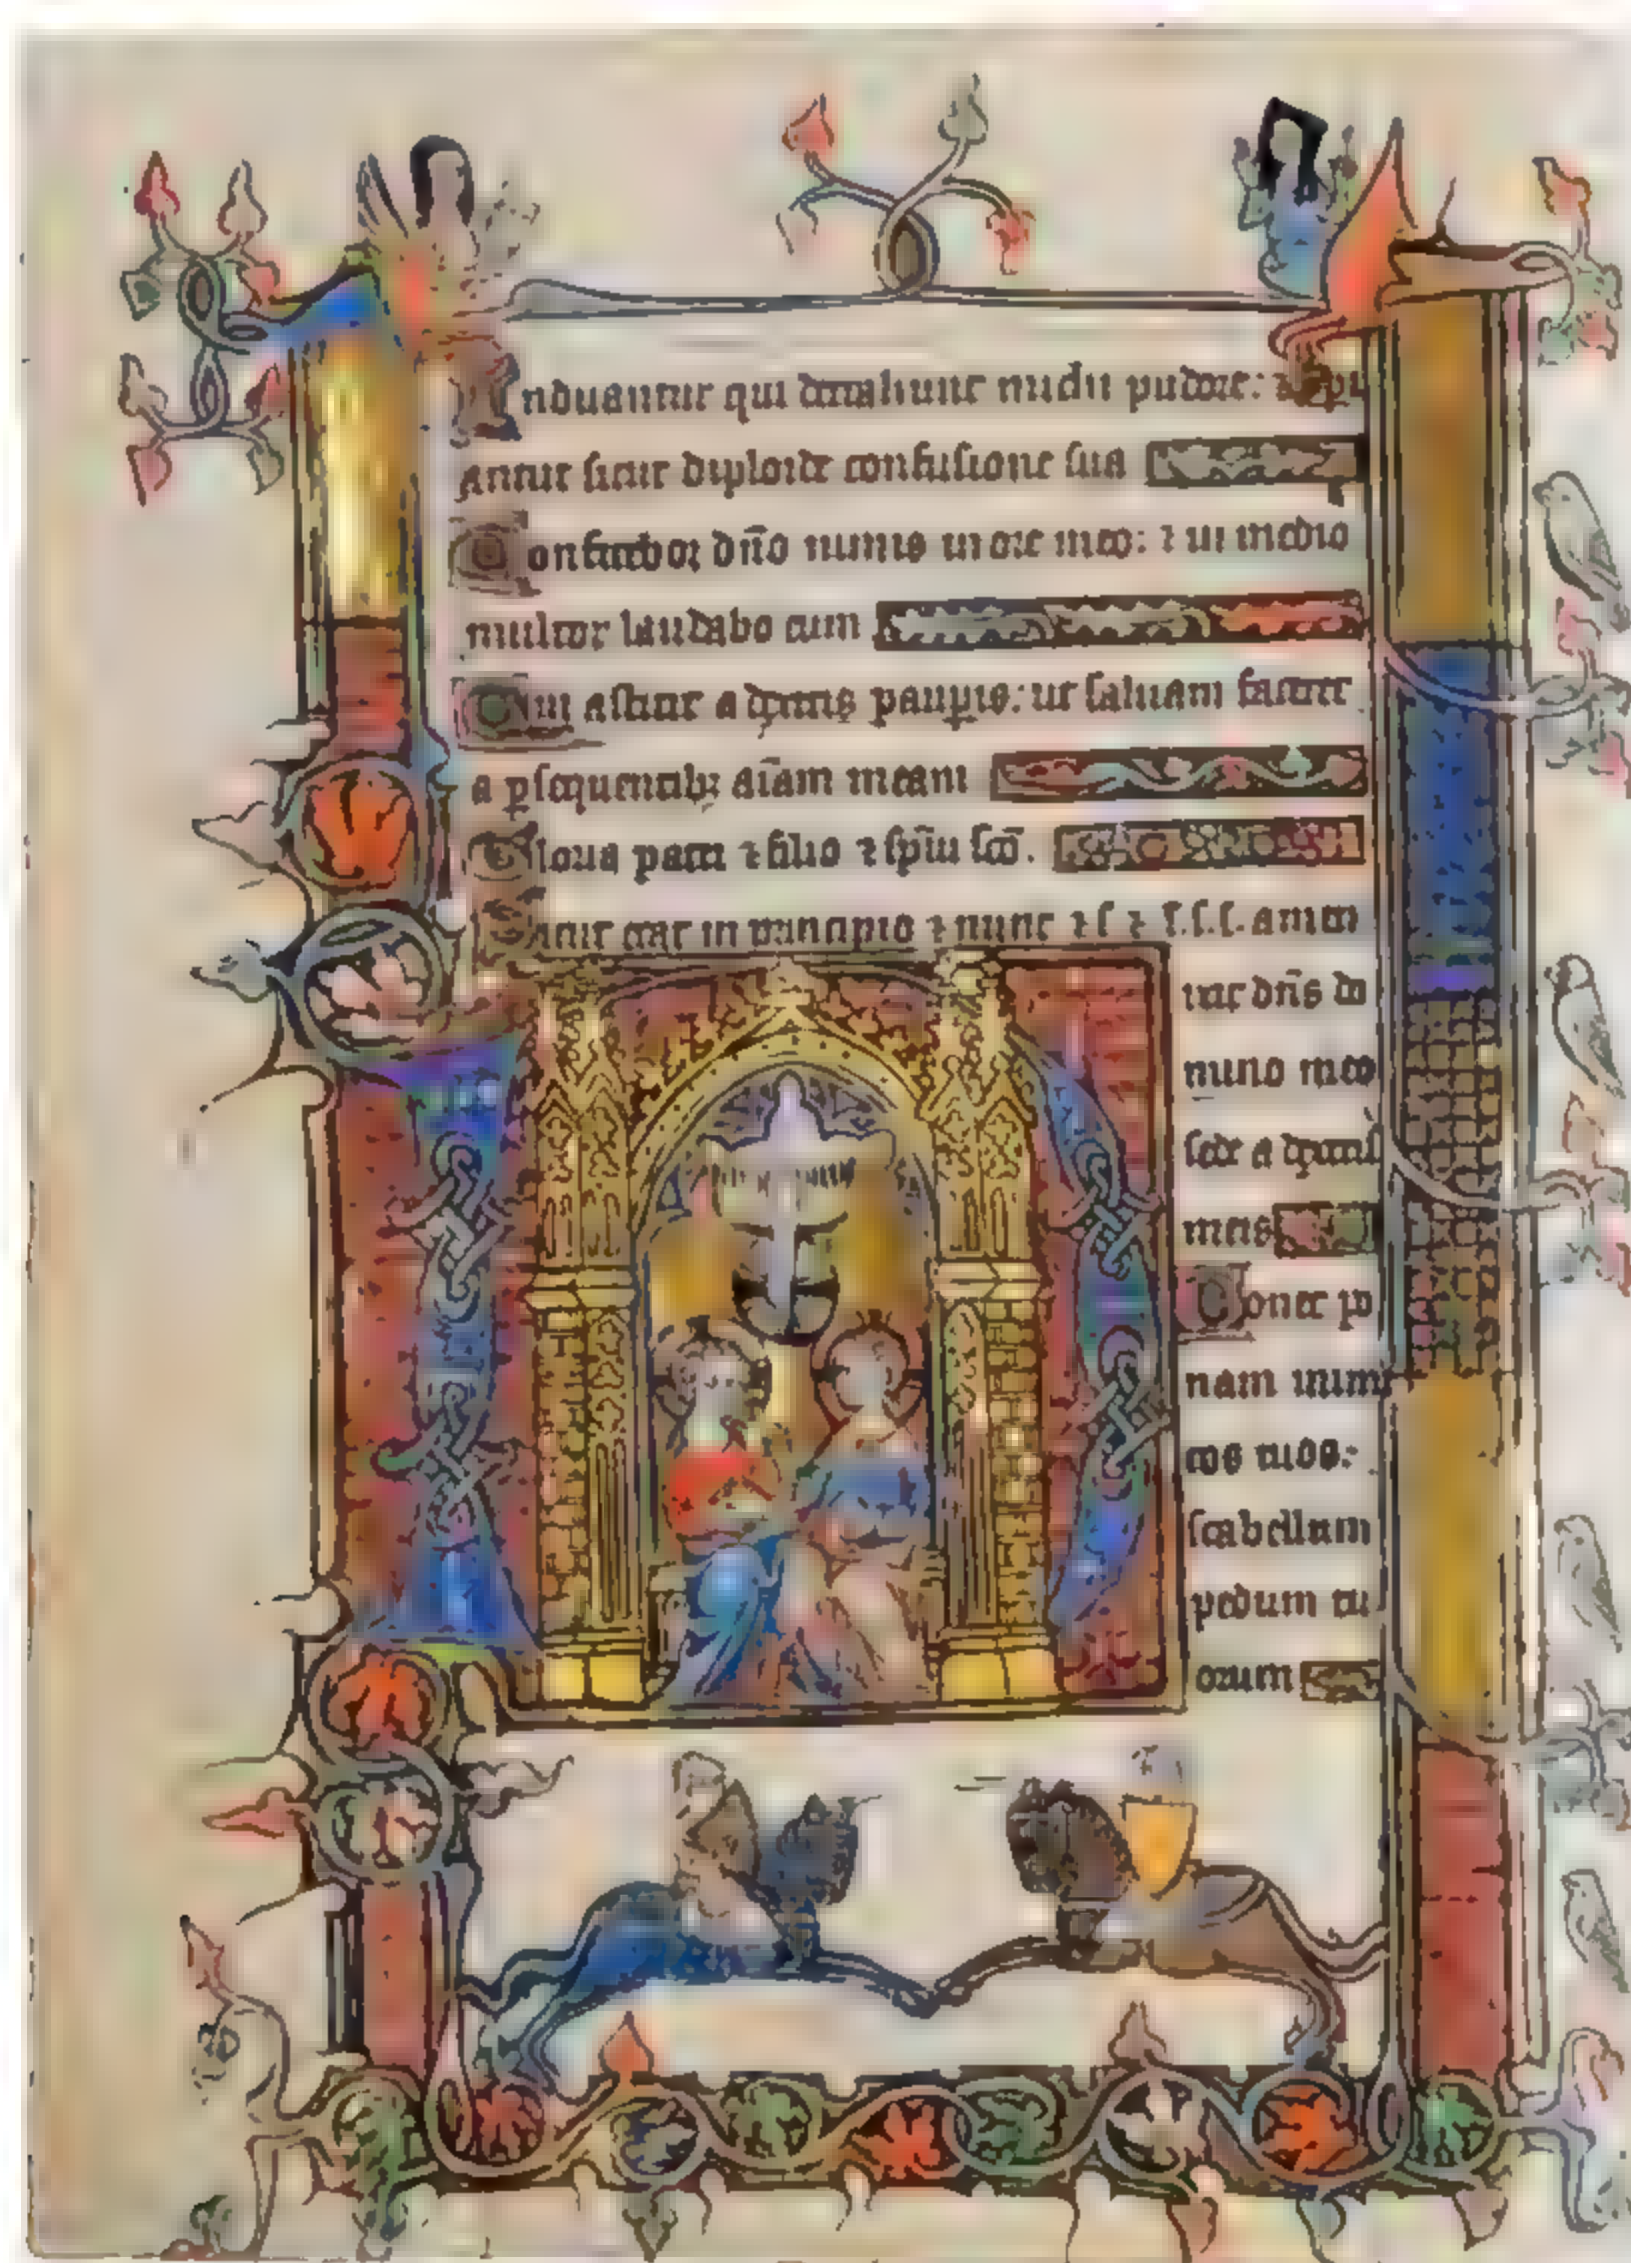 Induantur qui detrahunt michi pudore: & opi
antur sicut diploide confusione sua
Confitebor dño nimis in ore meo: ⁊ in medio
multoꝝ laudabo eum
Qui astitit a dextris paupis: ut saluam faceret
a ꝑsequentibꝫ aīam meam
Gloria patri ⁊ filio ⁊ spiũ sco̅.
Sicut erat in principio ⁊ nunc ⁊ s ⁊ i. s. s. amen
xit dñs do
mino meo
sede a dextris
meis
Donec po
nam inimi
cos tuos:
scabellum
pedum tu
orum